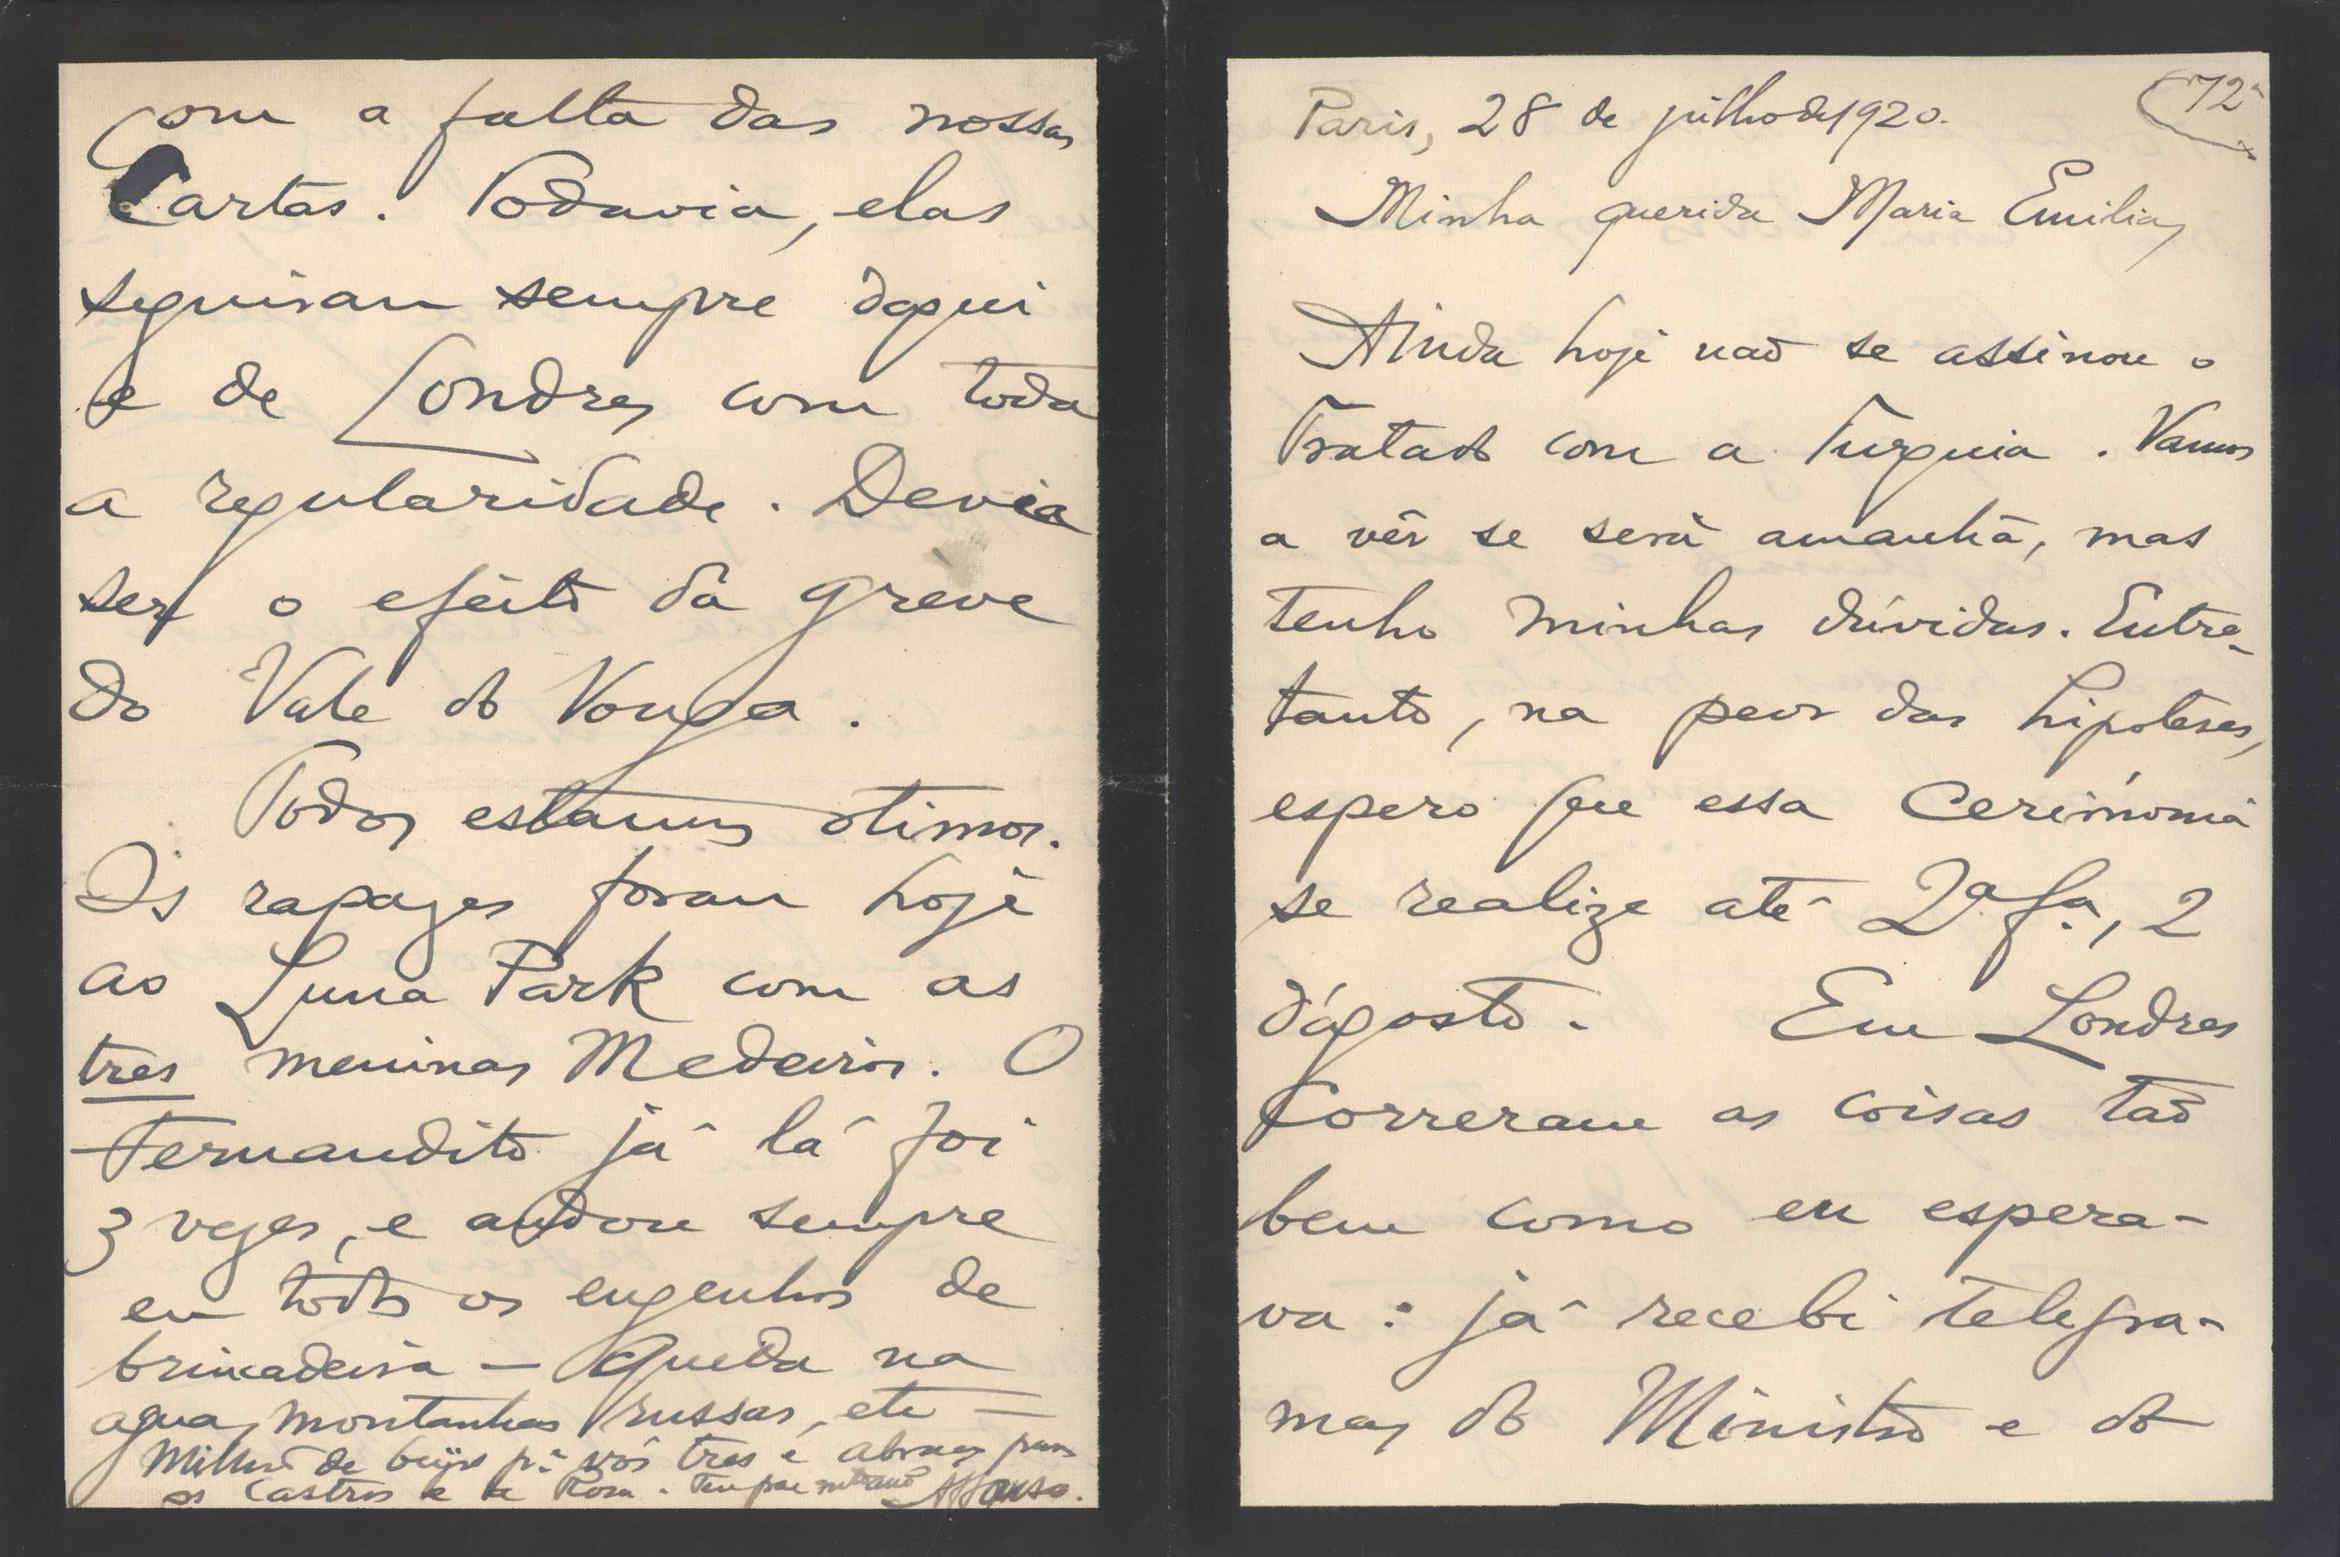 72
Paris, 28 de julho de 1920.
Minha querida Maria Emilia,
Ainda hoje não se assinou o
Tratado com a Turquia. Vamos
a vêr se será amanhã, mas
tenho minhas dúvidas. Entre-
tanto, na peor das hipoteses,
espero que essa cerimónia
se realize até 2ª fª, 2
d'ágosto. Em Londres
correram as coisas tão
bem como eu espera-
va: já recebi telegra-
mas do Ministro e do
com a falta das nossas
cartas. Todavia, elas
seguiram sempre daqui
e de Londres com toda
a regularidade. Devia
ser o efeito da grève
do Vale do Vouga.
Todos estamos otimos.
Os rapazes foram hoje
ao Luna Park com as
tres meninas Medeiros. O
Fernandito já lá foi
3 vezes, e andou sempre
em todos os engenhos de
brincadeira — queda na
agua, montanhas russas, etc —
Milhão de beijos pª vós tres e abraços para
os Castros e a Rosa. Teu pae mt.º amº Affonso.